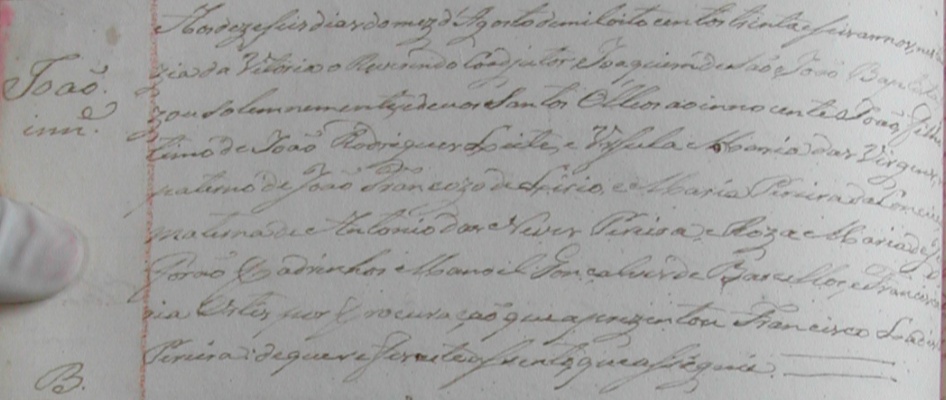 Aos dezeseis dias do mez d'Agosto de mil oito centos trinta e seis annos, na
João.
zia da Vitoria o Reverendo Coadjutor Joaquim de São João Baptista
innᵉ.
zou solemnemente, e deu os Santos Olleos ao innocente João, filho
timo de João Rodrigues Leite, e Ursula Maria das Virgens,
paterno de João Francozo de Lirio, e Maria Pereira da Conceiç
materna de Antonio das Neves Pereira, e Roza Maria de J
Forão Padrinhos Manoel Gonçalves de Barcellos, e Francisca
ria Ortis, por Procuração que aprezentou Francisco Ladis
Pereira: de que fis este assento, que assignei.
B.